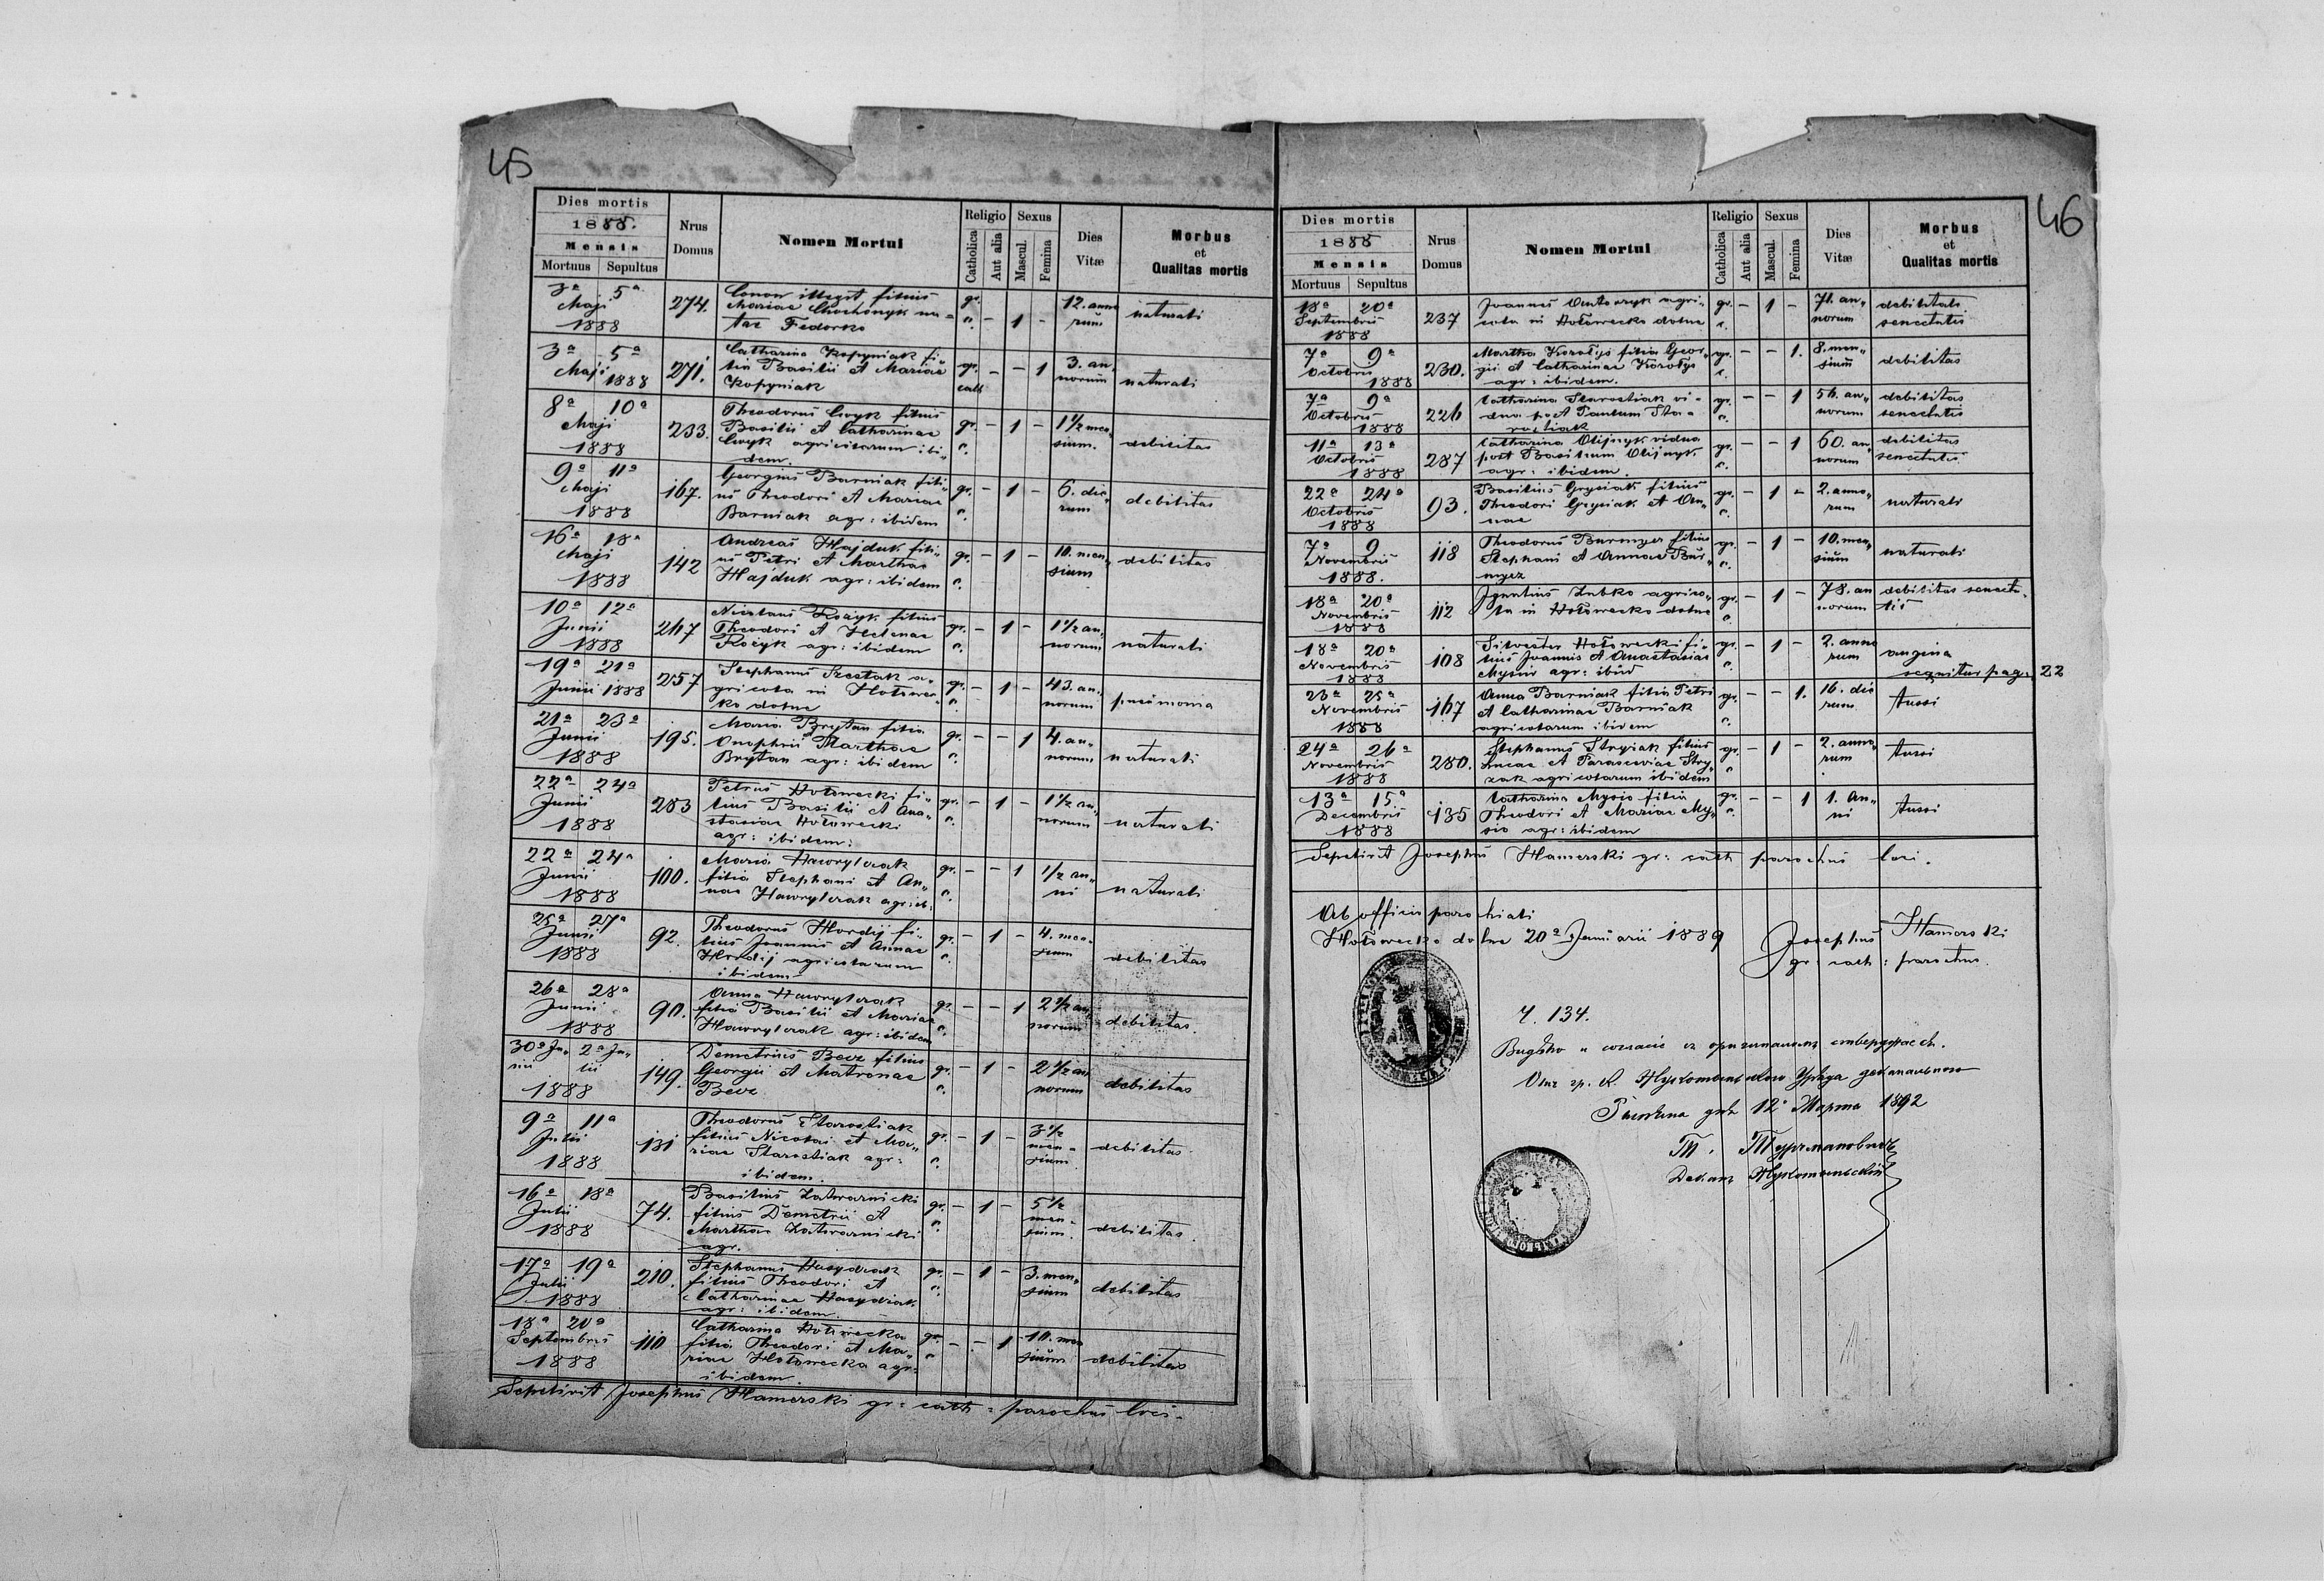 45
Dies mortis
1888.
Mensis
Mortuus Sepultus
Nrus
Domus
Nomen Mortui
Religio
Catholica
Aut alia
Sexus
Mascul.
Femina
Dies
Vitæ
Morbus
et
Qualitas mortis
3ª 5ª
Maji
1888
274.
Conon illegit filius
Mariae Chochonyk na=
tae Fedorko
gr. c. - 1 -
12. anno
rum
naturali
3ª 5ª
Maji 1888
271.
Catharina Kopyniak fi=
lia Basilii et Mariae
Kopyniak
gr. cath - - 1
3. an„
norum
naturali
8ª 10ª
Maji
1888
233.
Theodorus Cwyk filius
Basilii et Catharinae
Cwyk agricolarum ibi„
dem.
gr. c. - 1 -
1½ men
sium.
debilitas
9ª 11ª
Maji
1888
167.
Georgius Barniak fili„
us Theodori et Mariae
Barniak agr: ibidem
gr. c. - 1 -
6. die„
rum
debilitas
16ª 18ª
Maji
1888
142
Andreas Hajduk fili„
us Petri et Marthae
Hajduk agr: ibidem
gr. c. - 1 -
10. men„
sium
debilitas
10ª 12ª
Junii
1888
247
Nicolaus Kozyk filius
Theodori et Helenae
Kozyk agr: ibidem
gr. c. - 1 -
1½ an„
norum
naturali
19ª 21ª
Junii 1888
257
Stephanus Szestak a„
gricola in Hołowec„
ko dolne
gr. c. - 1 -
43. an„
norum
pneumonia
21ª 23ª
Junii
1888
195.
Maria Brytan filia
Onophrii Marthae
Brytan agr: ibidem
gr. c. - - 1
4. an„
norum
naturali
22ª 24ª
Junii
1888
283
Petrus Hołowecki fi„
lius Basilii et Ana„
stasiae Hołowecki
agr: ibidem:
gr. c. - 1 -
1½ an„
norum
naturali
22ª 24ª
Junii
1888
100.
Maria Hawrylczak
filia Stephani et An„
nae Hawrylczak agr: ib:
gr. c. - - 1
1/2 an„
ni
naturali
25ª 27ª
Junii
1888
92.
Theodorus Hordij fi„
lius Joannis et Annae
Hordij agricolarum
ibidem
gr. c. - 1 -
4. men„
sium
debilitas
26ª 28ª
Junii
1888
90.
Anna Hawrylczak
filia Basilii et Mariae
Hawrylczak agr: ibidem
gr. c. - - 1
2½ an„
norum
debilitas.
30ª Ju„ 2ª Ju„
nii lii
1888
149.
Demetrius Becz filius
Georgii et Matronae
Becz
gr. c. - 1 -
2½ an„
norum
debilitas
9ª 11ª
Julii
1888
131
Theodorus Starostiak
filius Nicolai et Ma„
riae Starostiak agr:
ibidem.
gr. c. - 1 -
3½
men=
sium.
debilitas.
16ª 18ª
Julii
1888
74.
Basilius Zatwarnicki
filius Demetrii et
Marthae Zatwarnicki
agr.
gr. c. - 1 -
5½
men=
sium.
debilitas.
17ª 19ª
Julii
1888
210.
Stephanus Hasydzak
filius Theodori et
Catharinae Hasydzak
agr: ibidem
gr. c. - 1 -
3. men„
sium
debilitas
18ª 20ª
Septembris
1888
110
Catharina Hołowecka
filia Theodori et Ma„
riae Hołowecka agr:
ibidem.
gr. c. - - 1
10. men
sium
debilitas
Sepelivit Josephus Hamerski gr: cath: parochus loci.
46
Dies mortis
1888
Mensis
Mortuus Sepultus
Nrus
Domus
Nomen Mortui
Religio
Catholica
Aut alia
Sexus
Mascul.
Femina
Dies
Vitæ
Morbus
et
Qualitas mortis
18ª 20ª
Septembris
1888
237
Joannes Antoszyk agri„
cola in Hołowecko dolne
gr. c. - 1 -
71. an„
norum
debilitas
senectutis
7ª 9ª
Octobris
1888
230.
Martha Korotys filia Geor„
gii et Catharinae Korotys
agr: ibidem.
gr. c. - - 1.
8. men„
sium
debilitas
7ª 9ª
Octobris
1888
226
Catharina Starostiak vi=
dua post Paulum Sta=
rostiak
gr. c. - - 1
56. an„
norum
debilitas
senectutis
11ª 13ª
Octobris
1888
287
Catharina Olijnyk vidua
post Basilium Olijnyk
agr: ibidem.
gr. c. - - 1
60. an„
norum
debilitas
senectutis
22ª 24ª
Octobris
1888
93.
Basilius Grysiak filius
Theodori Grysiak et An„
nae
gr. c. - 1 -
2. anno„
rum
naturali
7ª 9
Novembris
1888.
118
Theodorus Burmyez filius
Stephani et Annae Bur„
myez
gr. c. - 1 -
10. men„
sium
naturali
18ª 20ª
Novembris
1888
112
Ignatius Zubko agrico„
la in Hołowecko dolne
gr. c. - 1 -
78. an
norum
debilitas senectu„
tis
18ª 20ª
Novembris
1888
108
Silvester Hołowecki fi„
lius Joannis et Anastasiae
Mysiw agr: ibid
gr. c. - 1 -
2. anno
rum
angina
sequitur pag: 22
23ª 25ª
Novembris
1888
167
Anna Barniak filia Petri
et Catharinae Barniak
agricolarum ibidem
gr. c. - - 1.
16. die
rum
tussi
24ª 26ª
Novembris
1888
280.
Stephanus Stryiak filius
Lucae et Parasceviae Stry„
zak agricolarum ibidem
gr. c. - 1 -
2. anno„
rum
tussi
13ª 15ª
Decembris
1888
135
Catharina Mysio filia
Theodori et Mariae My„
sio agr: ibidem
gr. c. - - 1
1. an„
ni
tussi
Sepelivit Josephus Hamerski gr: cath parochus loci.
Ab officio parochiali
Hołowecko dolne 20ª Januarii 1889
Josephus Hamerski
gr: cath: parochus.
Ч. 134.
Видѣно и согласіе съ оригиналомъ стверджаесь.
Отъ гр. к. Жукотинського Уряда деканального
дня 12 Марта 1892
Декан Жукотинський